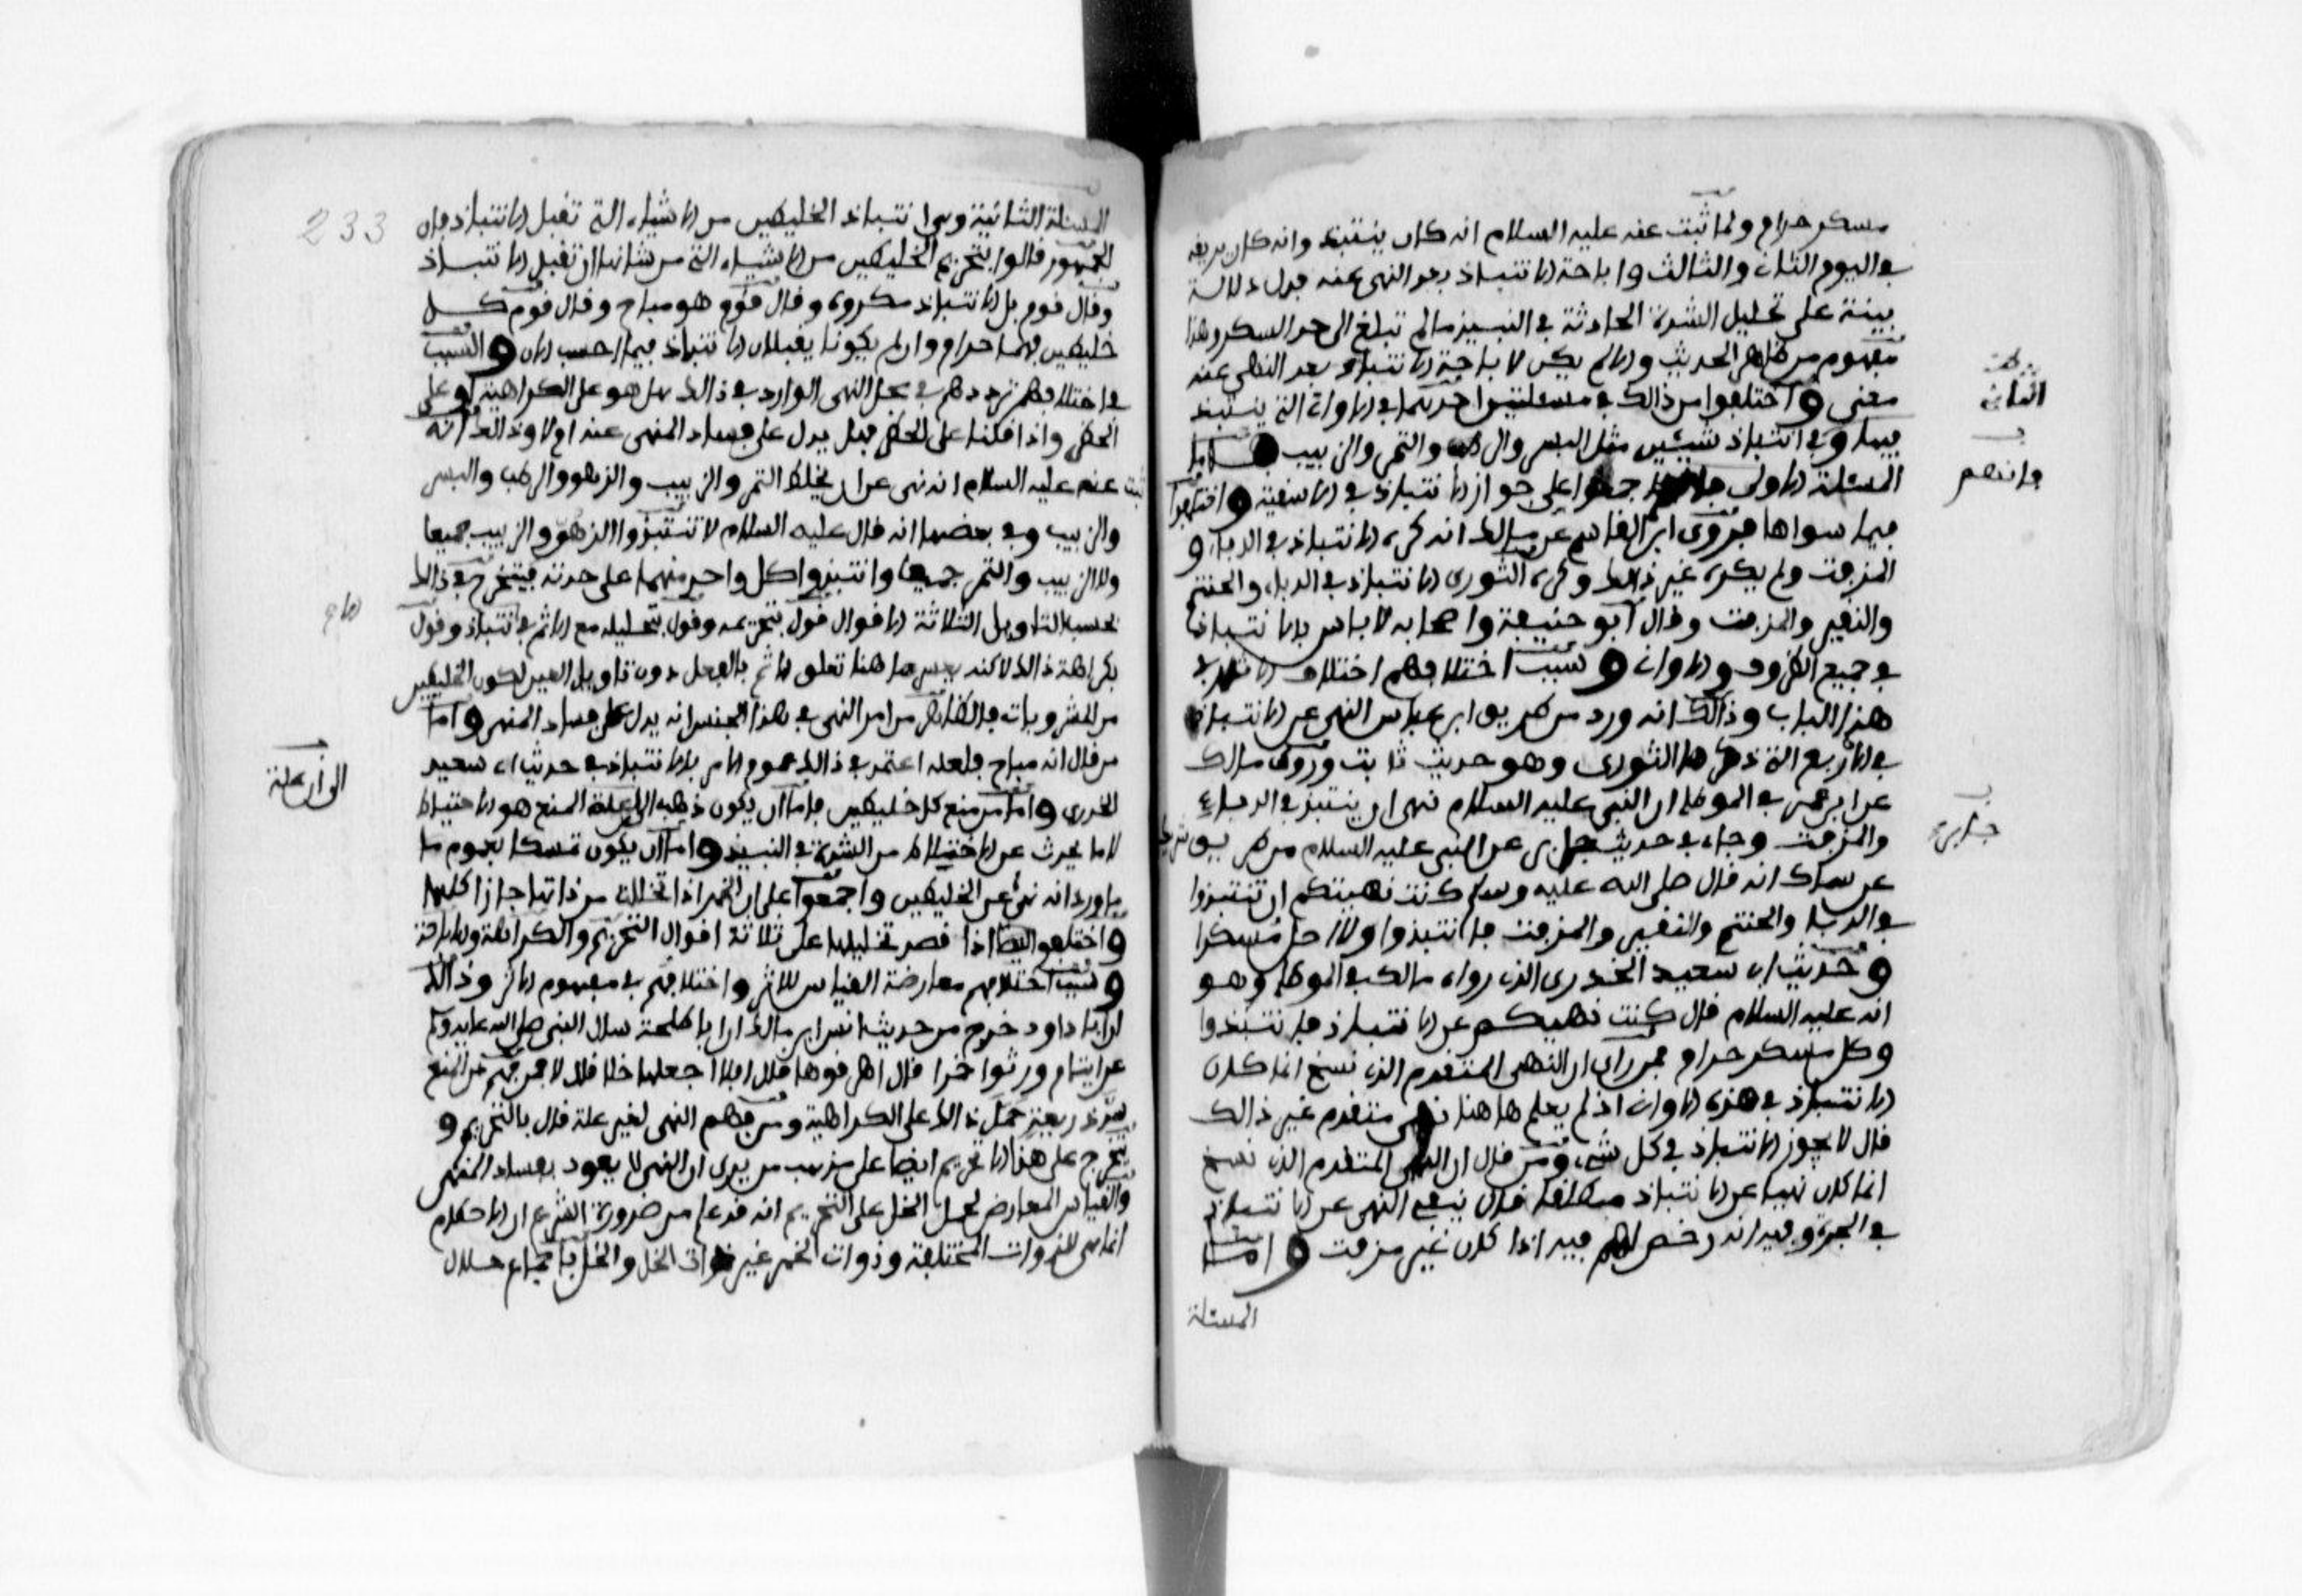 مسكر حرام ولما ثبت عنه عليه السلام انه كان ينتبذ وانه كان يريقه
في اليوم الثاني والثالث واباحة الانتباذ بعد النهي عنه يدل دلالة
بينة على تحليل الشدة الحادثة في النبيذ مالم تبلغ الى حد السكر وهذا
مفهوم من ظاهر الحديث والالم يكن لاباحة الانتباذ بعد النهي عنه
معنى واختلفوا من ذالك في مسئلتين احديهما في الاواني التي ينتبذ
الثانية
فيها وفي انتباذ شيئين مثل البسر والرطب والتمر والزبيب فاما
فانهم
المسئلة الاولى اجمعوا على جواز الانتباذ في الاسقية واختلفوا
فيما سواها فروى ابن القاسم عن مالك انه كره الانتباذ في الدباء و
المزفت ولم يكره غير ذالك وكره الثوري الانتباذ في الدباء والحنتم
والنقير والمزفت وقال ابو حنيفة واصحابه لا باس بالانتباذ
في جميع الظروف والاواني وسبب اختلافهم اختلاف الاثار في
هذا الباب وذالك انه ورد من طريق ابن عباس النهي عن الانتباذ
في الاربع التي ذكرها الثوري وهو حديث ثابت وروى مالك
عن ابن عمر في الموطا ان النبي عليه السلام نهى ان ينتبذ في الدباء
جابر
والمزفت وجاء في حديث جابر عن النبي عليه السلام من طريق شريك
عن سماك انه قال صلى الله عليه وسلم كنت نهيتكم ان تنتبذوا
في الدباء والحنتم والنقير والمزفت فانتبذوا ولا احل مسكرا
وحديث ابي سعيد الخدري الذي رواه مالك في الموطا وهو
انه عليه السلام قال كنت نهيتكم عن الانتباذ فانتبذوا
وكل مسكر حرام فمن راى ان النهي المتقدم الذي نسخ انما كان
الانتباذ في هذه الاواني اذ لم يعلم هاهنا نهي متقدم غير ذالك
قال لا يجوز الانتباذ في كل شيء ومن قال ان النهي المتقدم الذي نسخ
انما كان نهيا عن الانتباذ مطلقا قال بقي النهي عن الانتباذ
في الجرة وفيه انه رخص لهم فيه اذا كان غير مزفت واما
المسئلة
233
المسئلة الثانية وهي انتباذ الخليطين من الاشياء التي تقبل الانتباذ فان
الجمهور قالوا بتحريم الخليطين من الاشياء التي من شانها ان تقبل الانتباذ
وقال قوم بل الانتباذ مكروه وقال قوم هو مباح وقال قوم كل
خليطين فهما حرام وان لم يكونا يقبلان الانتباذ فيما احسب الان والسبب
في اختلافهم ترددهم في محل النهي الوارد في ذالك هل هو على الكراهية او على
الحظر واذا قلنا على الحظر فهل يدل على فساد المنهي عنه ام لا وذالك انه
ثبت عنه عليه السلام انه نهى عن ان يخلط التمر والزبيب والزهو والرطب والبسر
والزبيب وفي بعضها انه قال عليه السلام لا تنتبذوا الزهو والزبيب جميعا
ولا الزبيب والتمر جميعا وانتبذوا كل واحد منهما على حدته فيتخرج في ذالك
بحسب التاويل الثلاثة الاقوال قول بتحريمه وقول بتحليله مع الاثم في الانتباذ وقول
بكراهة ذالك لاكنه ليس هاهنا تعلق الاثم بالفعل دون تاويل العين لكون الخليطين
من المشروبات فالظاهر من امر النهي في هذا الجنس انه يدل على فساد المنهي واما
من قال انه مباح فلعله اعتمد في ذالك عموم الامر بالانتباذ في حديث ابي سعيد
الى ان علة
الخدري واما من منع كل خليطين فاما ان يكون ذهب الى ان علة المنع هو الاختلاط
لا ما يحدث عن الاختلاط من الشدة في النبيذ واما ان يكون تمسك بعموم ما
ما ورد انه نهى عن الخليطين واجمعوا على ان الخمر اذا تخللت من ذاتها جاز اكلها
واختلفوا ايضا اذا قصد تخليلها على ثلاثة اقوال التحريم والكراهة والاباحة
وسبب اختلافهم معارضة القياس للاثر واختلافهم في مفهوم الاثر وذالك
ان ابا داود خرج من حديث انس ابن مالك ان ابا طلحة سال النبي صلى الله عليه وسلم
عن ايتام ورثوا خمرا قال اهرقوها قال افلا اجعلها خلا قال لا فمن فهم من المنع
سد ذريعة حمل ذالك على الكراهية ومن فهم النهي لغير علة قال بالتحريم و
يتخرج على هذا الا تحريم ايضا على مذهب من يرى ان النهي لا يعود بفساد المنهي
والقياس المعارض لحمل الخل على التحريم انه قد علم من ضرورة الشرع ان الاحكام
انما هي للذوات المختلفة وذوات الخمر غير ذوات الخل والخل باجماع حلال